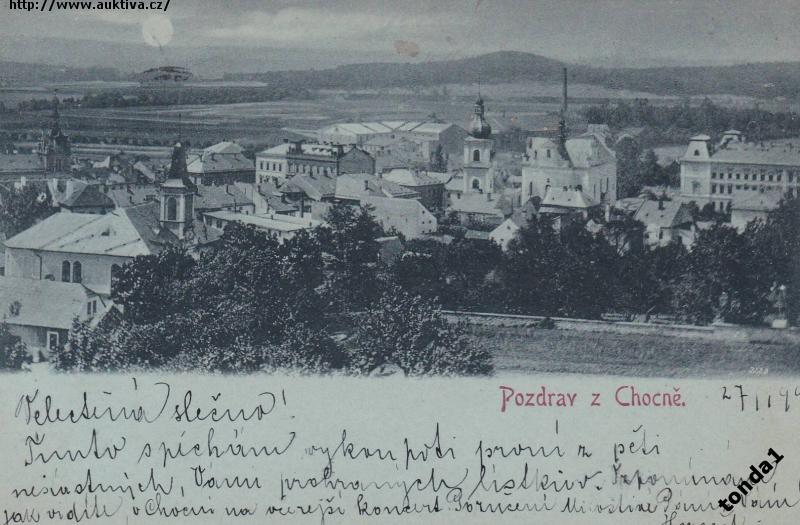 http://www.auktiva.cz/
Pozdrav z Chocně.
27/I 99
Velectěná slečno!
Tímto spěchám vykoupiti první z pěti
nešťastných, Vámi prohraných lístkův. Vzpomínám
jak vidíte v Chocni na včerejší koncert. Poručení Milostivé Paní, Vám
tonda1